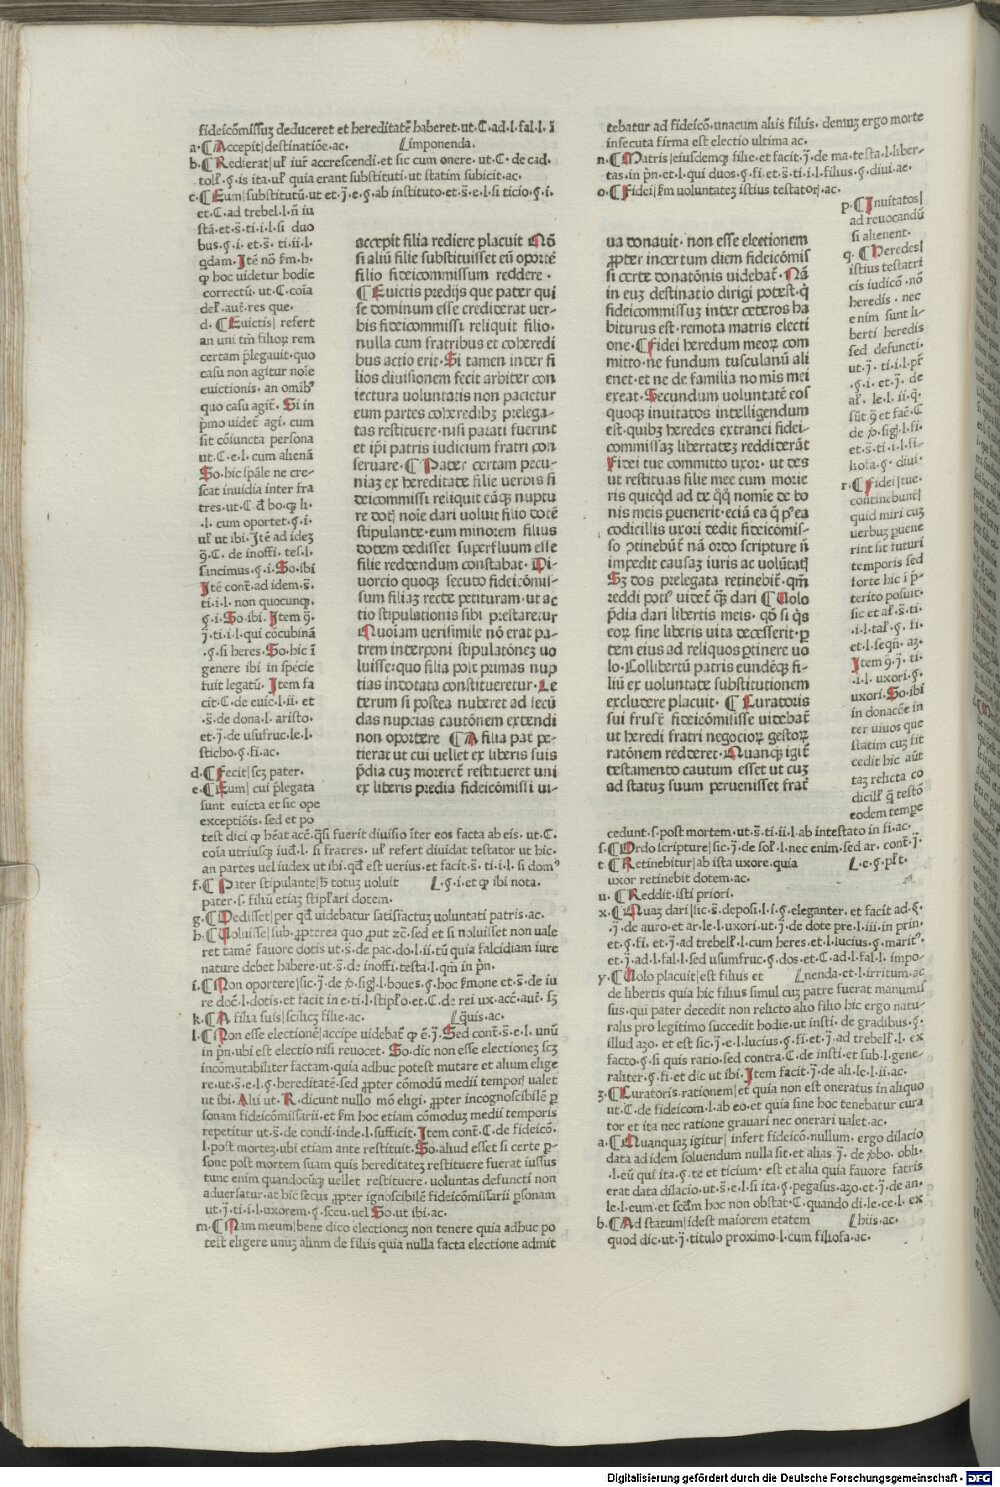 fideicōmissuʒ deduceret et hereditatē haberet·ut·C·ad·l·fal·l·ī
a·¶Accepit|destinatiōe·ac·
imponenda.
b·¶Redierat|uł iur̄ accrescendi·et sic cum onere·ut·C·de cad·
toll̄·§·is ita·uł quia erant substituti·ut statim subicit·ac·
c·¶Eum|substitutū·ut et·j̄·e·§·ab instituto·et·s̄·e·l·si ticio·§·i·
et·C·ad trebel·l·n̄ iu
stā·et·s̄·ti·i·l·si duo
bus·§·i·et·s̄·ti·ii·l·
qdam·Itē nō f̄m·h·
qp hoc uidetur hodie
correctū·ut·C·cōia
def̄·aut̄·res que·
d·¶Euictis|refert
an uni tm̄ filioꝝ rem
certam p̄legauit·quo
casu non agitur noīe
euictionis·an omibꝰ
quo casu agit̄·Si in
p̄mo uidet̄ agi·cum
sit cōiuncta persona
ut·C·e·l·cum alienā
So·hic sp̄ale ne cre-
scat inuidia inter fra
tres·ut·C·d̄ bo·q̄·li·
·l·cum oportet·§·i·
uł ut ibi·Itē ad ideʒ
q̄·C·de inoffi·tes·l·
sancimus·§·i·So·ibi
Itē cont̄·ad idem·s̄·
ti·i·l·non quocunqꝫ·
§·i·So·ibi·Item q̄·
j̄·ti·i·l·qui cōcubinā
·§·si heres·So·hic ī
genere ibi in specie
fuit legatū·Item fa
cit·C·de euic·l·ii·et
·s̄·de dona·l·aristo·
et·j̄·de usufruc·le·l·
sticho·§·fi·ac·
d·¶Fecit|scʒ pater·
e·¶Eum|cui p̄legata
sunt euicta et sic ope
exceptiōis·sed et po
test dici qp hēat acē·q̄si fuerit diuisio īter eos facta ab eis·ut·C·
cōia utriusqꝫ iud̄·l·si fratres·uł refert diuidat testator ut hic·
an partes uel iudex ut ibi·qd̄ est uerius·et facit·s̄·ti·i·l·si domꝰ
f·¶Pater stipulante|h̄ totuʒ uoluit
§·i·et qp ibi nota·
pater·s·filiū etiaʒ stipl̄ari dotem·
g·¶Dedisset|per qd̄ uidebatur satisfactuʒ uoluntati patris·ac·
h·¶Uoluisse|sub·ꝓpterea quo·put zē·sed et si noluisset non uale
ret tamē fauore dotis ut·s̄·de pac·do·l·ii·tū quia falcidiam iure
nature debet habere·ut·s̄·de inoffi·testa·l·qm̄ in pn̄·
i·¶Non oportere|sic·j̄·de ꝓ·sigl̄·l·boues·§·hoc f̄mone et·s̄·de iu
re doc̄·l·dotis·et facit in·e·ti·l·stipl̄o·et·C·de rei ux·acc̄·aut̄·sʒ
k·¶A filia suis|scilicʒ filie·ac·
quis·ac·
l·¶Non esse electionē|accipe uidebat̄ qp e·j̄·Sed cont̄·s̄·e·l·unū
in pn̄·ubi est electio nisi reuocet·So·dic non esse electioneʒ scʒ
incōmutabiliter factam·quia adhuc potest mutare et alium elige
re·ut·s̄·e·l·§·hereditatē·sed ꝓpter cōmodū medii temporꝭ ualet
ut ibi·Alii ut·R·dicunt nullo mō eligi·ꝓpter incognoscibilē p
sonam fideicōmissarii·et f̄m hoc etiam cōmoduʒ medii temporis
repetitur ut·s̄·de condi·inde·l·sufficit·Item cont̄·C·de fideicō·
l·post morteʒ·ubi etiam ante restituit·So·aliud esset si certe p
sone post mortem suam quis hereditateʒ restituere fuerat iussus
tunc enim quandocūqꝫ uellet restituere·uoluntas defuncti non
aduersatur·at hic secus ꝓpter ignoscibilē fideicōmissarii psonam
ut·j̄·ti·i·l·uxorem·§·sceu·uel So·ut ibi·ac·
m·¶Nam meum|bene dico electioneʒ non tenere quia adhuc po
test eligere unuʒ alium de filiis quia nulla facta electione admit
accepit filia rediere placuit Nō
si aliū filie substituisset eū oportē
filio fideicommissum reddere·
¶Euictis predijs que pater qui
se dominum esse crediderat uer-
bis fideicommissi reliquit filio·
nulla cum fratribus et coheredi
bus actio erit·Si tamen inter fi
lios diuisionem fecit arbiter con
iectura uoluntatis non patietur
eum partes coheredibʒ prelega-
tas restituere·nisi parati fuerint
et ipi patris iudicium fratri con
seruare·¶Pater certam pecu-
niaʒ ex hereditate filie uerbis fi
deicommissi reliquit eāqꝫ nuptu
re dotʒ noīe dari uoluit filio dotē
stipulante·eum minorem filius
dotem dedisset superfluum esse
filie reddendum constabat·Di
uorcio quoqꝫ secuto fideicōmis-
sum filiaʒ recte petituram·ut ac
tio stipulationis sibi prestaretur
Quoīam uerisimile nō erat pa-
trem interponi stipulatōneʒ uo
luisse·quo filia post primas nup
tias indotata constitueretur·Ce
terum si postea nuberet ad secū
das nupcias cautōnem extendi
non oportere ¶A filia pat̄ pe-
tierat ut cui uellet ex liberis suis
p̄dia cuʒ morereī restitueret uni
ex liberis predia fideicōmissi ui-
tebatur ad fideicō·unacum aliis filiis·demuʒ ergo morte
insecuta firma est electio ultima ac·
n·¶Matris|eiusdemqꝫ filie·et facit·j̄·de ma·testa·l·liber-
tas·in pn̄·et·l·qui duos·§·fi·et·s̄·ti·i·l·filius·§·diui·ac·
o·¶Fidei|f̄m uoluntateʒ istius testatorꝭ·ac·
ua donauit·non esse electionem
ꝓpter incertum diem fideicōmis
si certe donatōnis uidebat̄·Nā
in euʒ destinatio dirigi potest·q̄
fideicommissuʒ inter ceteros ha
biturus est·remota matris electi
one·¶Fidei heredum meoꝝ com
mitto·ne fundum tusculanū ali
enet·et ne de familia nominis mei
exeat·Secundum uoluntatē eos
quoqꝫ inuitatos intelligendum
est·quibʒ heredes extranei fidei-
commissaʒ libertateʒ reddiderāt
Fidei tue committo uxor·ut des
ut restituas filie mee cum morie
ris quicqd ad te q̄q̄ noīe de bo
nis meis puenerit·eciā ea q̄ pꝰea
codicillis uxori dedit fideicōmis-
so ptinebūt nā ordo scripture n̄
impedit causaʒ iuris ac uolūtatꝭ
Sʒ dos prelegata retinebit̄·qm̄
reddi potiꝰ uidet̄ qꝫ dari ¶Uolo
p̄dia dari libertis meis·qd̄ si qͥs
eoꝝ sine liberis uita decesserit·p
tem eius ad reliquos ptinere uo
lo·Collibertū patris eundēqꝫ fi-
liū ex uoluntate substitutionem
excludere placuit·¶Curatoris
sui frust̄ fideicōmissū uidebat̄
ut heredi fratri negocioꝝ gestoꝝ
ratōnem redderet·Quanqꝫ igit̄
testamento cautum esset ut cuʒ
ad statuʒ suum peruenisset frat̄
p·¶Inuitatos|
ad reuocandū
si alienent·
q·¶Heredes|
istius testatri
cis iudicō·nō
heredis·nec
enim sunt li-
berti heredis
sed defuncti·
ut·j̄·ti·i·l·pr̄
·§·i·et·j̄·de
al̄·le·l·ii·q̄·
sūt q̄ et fac̄·C
de ꝓ·sigl̄·l·fi·
et·s̄·ti·i·l·fi-
liofa·§·diui·
r·¶Fidei|tue·
continebunt|
quid miri cuʒ
uerbuʒ puene
rint sit futuri
temporis sed
forte hic ī p̄-
terito posuit·
sic et al̄·s̄·ti·
·i·l·tal̄·§·fi·
et·l·seqn̄·aʒ·
Item q̄·j̄·ti·
·i·l·uxori·§·
uxori·So·ibi
in donacōe in
ter uiuos que
statim cuʒ fit
cedit hic aūt
taʒ relicta co
dicill̄ q̄ testō
eodem tempe
cedunt·s·post mortem·ut·s̄·ti·ii·l·ab intestato in fi·ac·
s·¶Ordo scripture|sic·j̄·de sol̄·l·nec enim·sed ar·cont̄·j̄·
t·¶Retinebitur|ab ista uxore·quia
e·§·pr̄t·
uxor retinebit dotem·ac·
u·¶Reddit·isti priori·
x·¶Quaʒ dari|sic·s̄·deposi·l·i·§·eleganter·et facit ad·§·
·j̄·de auro·et ar·le·l·uxori·ut·j̄·de dote pre·l·iii·in prin·
et·§·fi·et·j̄·ad trebell̄·l·cum heres·et·l·lucius·§·maritꝰ·
et·j̄·ad·l·fal·l·sed usumfruc·§·dos·et·C·ad·l·fal·l·impo-
y·¶Uolo placuit|est filius et
nenda·et·l·irritum·ac
de libertis quia hic filius simul cuʒ patre fuerat manumis
sus·qui pater decedit non relicto alio filio hic ergo natu-
ralis pro legitimo succedit hodie·ut insti·de gradibus·§·
illud aʒo·et est sic·j̄·e·l·lucius·§·fi·et·j̄·ad trebell̄·l·ex
facto·§·si quis ratio·sed contra·C·de insti·et sub·l·gene-
raliter·§·fi·et dic ut ibi·Item facit·j̄·de ali·le·l·ii·ac·
ʒ·¶Curatoris rationem|et quia non est oneratus in aliquo
ut·C·de fideicom·l·ab eo·et quia sine hoc tenebatur cura
tor et ita nec ratione grauari nec onerari ualet·ac·
a·¶Quanquaʒ igitur|infert fideicō·nullum·ergo dilacio
data ad idem soluendum nulla sit·et alias·j̄·de ꝓbo·obli·
·l·eū qui ita·§·te et ticium·est et alia quia fauore fatris
erat data dilacio·ut·s̄·e·l·si ita·§·pegasus·aʒo·et·j̄·de an-
le·l·eum·et scd̄m hoc non obstat·C·quando di·le·ce·l·ex
b·¶Ad statum|idest maiorem etatem
hiis·ac·
quod dic·ut·j̄·titulo proximo·l·cum filiofa·ac·
Digitalisierung gefördert durch die Deutsche Forschungsgemeinschaft - DFG